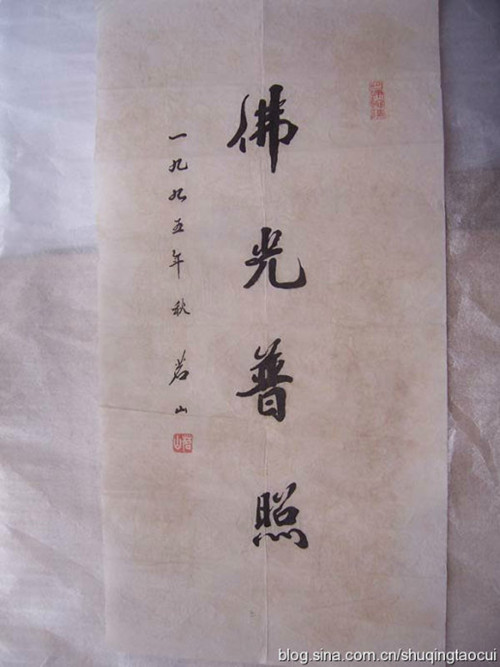 佛光普照
一九九五年秋 茗山
blog.sina.com.cn/shuqingtaocui